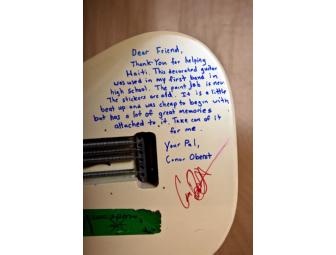 Dear Friend,
Thank You for helping
Haiti. This decorated guitar
was used in my first band in
high school. The paint job is new
The stickers are old. It is a little
beat up and was cheap to begin with
but has a lot of great memories
attached to it. Take care of it
for me.
Your Pal,
Conor Oberst